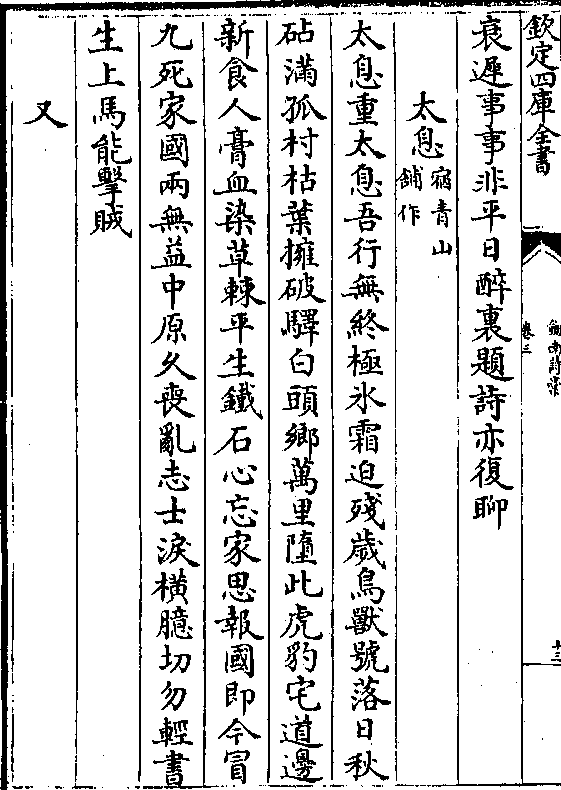 欽定四庫全書
劍南詩稾
卷三
十三
衰遲事事非平日醉裏題詩亦復聊
太息宿青山
舖作
太息重太息吾行無終極氷霜迫殘歲鳥獸號落日秋
砧滿孤村枯葉擁破驛白頭鄉萬里墮此虎豹宅道邊
新食人膏血染草棘平生鐵石心忘家思報國即今冒
九死家國兩無益中原久喪亂志士淚橫臆切勿輕書
生上馬能擊賊
又